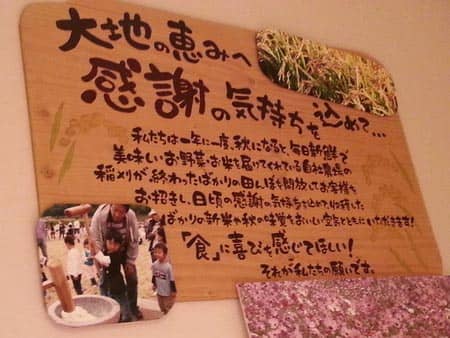 大地の恵みへ
感謝の気持ちを込めて…
私たちは一年に一度、秋になると、毎日新鮮で
美味しいお野菜・お米を届けてくれている自社農場の
稲刈が終わったばかりの田んぼを開放してお客様を
お招きし、日頃の感謝の気持ちを込めて収穫した
ばかりの新米や秋の味覚をおいしい空気とともにいただきます!
「食」に喜びを感じてほしい!
それが私たちの願いです。